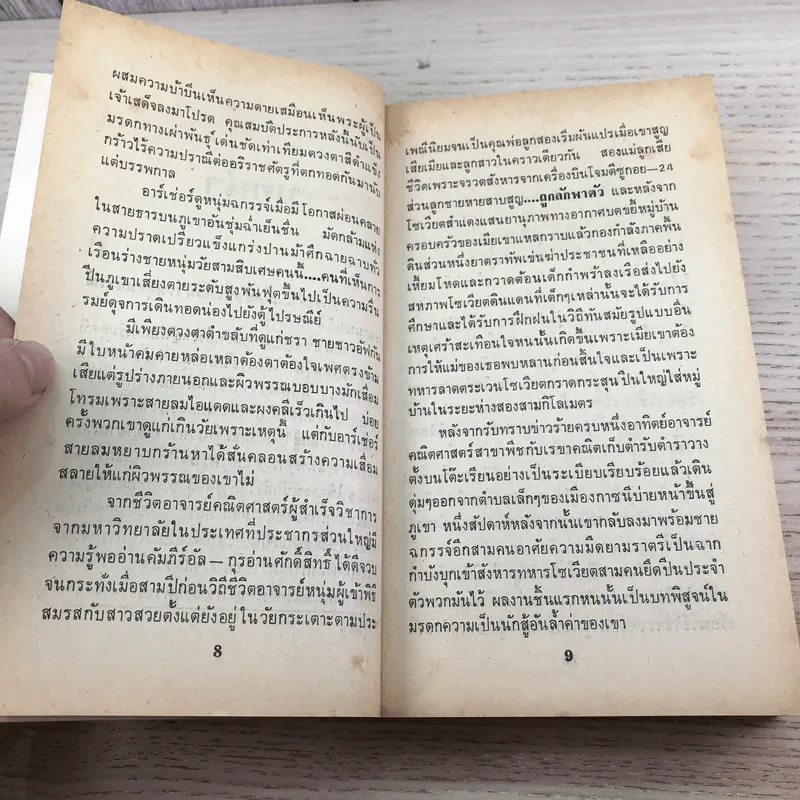 ผสมความบ้าบิ่นเห็นความตายเสมือนเห็นพระผู้เป็น
เจ้าเสด็จลงมาโปรด คุณสมบัติประการหลังนี้นับเป็น
มรดกทางเผ่าพันธุ์เด่นชัดเท่าเทียมดวงตาสีดำแข็ง
กร้าวไร้ความปราณีต่ออริราชศัตรูที่ตกทอดกันมานับ
แต่บรรพกาล
อาร์เชอร์ดูหนุ่มฉกรรจ์เมื่อมีโอกาสผ่อนคลาย
ในสายธารบนภูเขาอันชุ่มฉ่ำเย็นชื่น มัดกล้ามแห่ง
ความปราดเปรียวแข็งแกร่งปานม้าศึกฉายฉาบทั่ว
เรือนร่างชายหนุ่มวัยสามสิบเศษคนนี้....คนที่เห็นการ
ปีนภูเขาเสี่ยงตายระดับสูงพันฟุตขึ้นไปเป็นความรื่น
รมย์ดุจการเดินทอดน่องไปยังตู้ไปรษณีย์
มีเพียงดวงตาดำขลับที่ดูแก่ชรา ชายชาวอัฟกัน
มีใบหน้าคมคายหล่อเหลาต้องตาต้องใจเพศตรงข้าม
เสียแต่รูปร่างภายนอกและผิวพรรณบอบบางมักเสื่อม
โทรมเพราะสายลมไอแดดและผงคลีเร็วเกินไป บ่อย
ครั้งพวกเขาดูแก่เกินวัยเพราะเหตุนี้ แต่กับอาร์เชอร์
สายลมหยาบกร้านหาได้สั่นคลอนสร้างความเสื่อม
สลายให้แก่ผิวพรรณของเขาไม่
จากชีวิตอาจารย์คณิตศาสตร์ผู้สำเร็จวิชาการ
จากมหาวิทยาลัยในประเทศที่ประชากรส่วนใหญ่มี
ความรู้พออ่านคัมภีร์อัล—กุรอ่านศักดิ์สิทธิ์ได้ดีจวบ
จนกระทั่งเมื่อสามปีก่อนวิถีชีวิตอาจารย์หนุ่มผู้เข้าพิธี
สมรสกับสาวสวยตั้งแต่ยังอยู่ในวัยกระเตาะตามประ
8
เพณีนิยมจนเป็นคุณพ่อลูกสองเริ่มผันแปรเมื่อเขาสูญ
เสียเมียและลูกสาวในคราวเดียวกัน สองแม่ลูกเสีย
ชีวิตเพราะจรวดสังหารจากเครื่องบินโจมตีซูกอย—24
ส่วนลูกชายหายสาบสูญ....ถูกลักพาตัว และหลังจาก
โซเวียตสำแดงแสนยานุภาพทางอากาศบดขยี้หมู่บ้าน
ครอบครัวของเมียเขาแหลกราบแล้วกองกำลังภาคพื้น
ดินส่วนหนึ่งยาตราทัพเข่นฆ่าประชาชนที่เหลืออย่าง
เหี้ยมโหดและกวาดต้อนเด็กกำพร้าลงเรือส่งไปยัง
สหภาพโซเวียตดินแดนที่เด็กๆเหล่านั้นจะได้รับการ
ศึกษาและได้รับการฝึกฝนในวิถีทันสมัยรูปแบบอื่น
เหตุเศร้าสะเทือนใจหนนั้นเกิดขึ้นเพราะเมียเขาต้อง
การให้แม่ของเธอพบหลานก่อนสิ้นใจและเป็นเพราะ
ทหารลาดตระเวนโซเวียตกราดกระสุนปืนใหญ่ใส่หมู่
บ้านในระยะห่างสองสามกิโลเมตร
หลังจากรับทราบข่าวร้ายครบหนึ่งอาทิตย์อาจารย์
คณิตศาสตร์สาขาพีชคณิตกับเรขาคณิตเก็บตำรับตำราวาง
ตั้งบนโต๊ะเรียนอย่างเป็นระเบียบเรียบร้อยแล้วเดิน
ดุ่มๆออกจากตำบลเล็กๆของเมืองกาซนีบ่ายหน้าขึ้นสู่
ภูเขา หนึ่งสัปดาห์หลังจากนั้นเขากลับลงมาพร้อมชาย
ฉกรรจ์อีกสามคนอาศัยความมืดยามราตรีเป็นฉาก
กำบังบุกเข้าสังหารทหารโซเวียตสามคนยึดปืนประจำ
ตัวพวกมันไว้ ผลงานชิ้นแรกหนนั้นเป็นบทพิสูจน์ใน
มรดกความเป็นนักสู้อันล้ำค่าของเขา
9